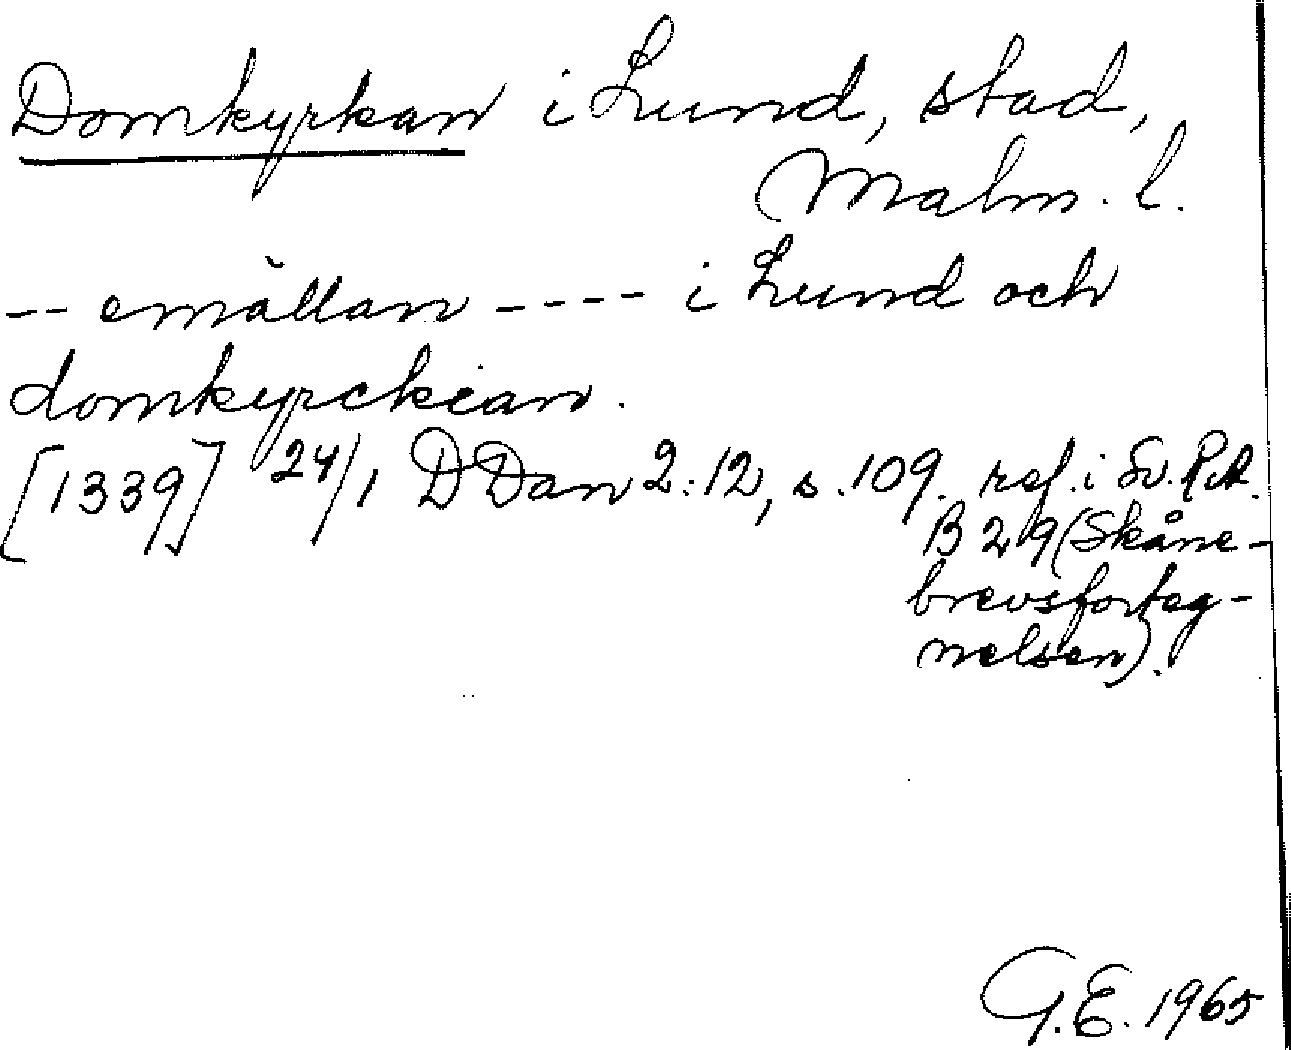 Domkyrkan i Lund, stad,
Malm. l.
-- emällan ---- i Lund och
domkyrckian.
[1339] 24/1 DDan 2:12, s. 109. ref. i Sv. R.A.
B 29 (Skåne-
brevsforteg-
nelsen).
G.E. 1965